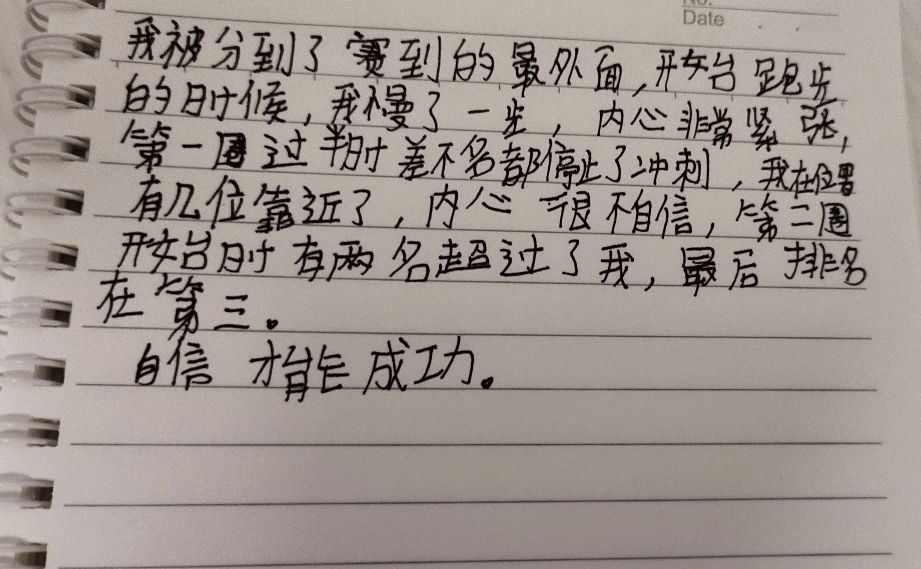 No.
Date
我被分到了赛到的最外面,开始跑步
的时候,我慢了一步,内心非常紧张,
第一圈过半时差不名都停止了冲刺,我在位置
有几位靠近了,内心很不自信,第二圈
开始时有两名超过了我,最后排名
在第三。
自信才能成功。